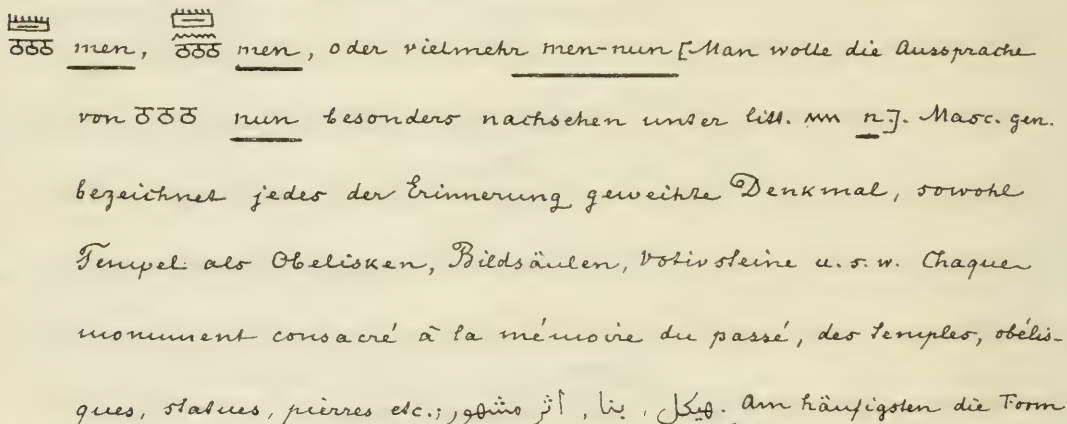 𓏠𓏌𓏌𓏌 men, 𓏠𓈖𓏌𓏌𓏌 men, oder vielmehr men-nun [Man wolle die Aussprache
von 𓏌𓏌𓏌 nun besonders nachsehen unter litt. 𓈖 n.]. Masc. gen.
bezeichnet jedes der Erinnerung geweihte Denkmal, sowohl
Tempel als Obelisken, Bildsäulen, Votivsteine u.s.w. Chaque
monument consacré à la mémoire du passé, des temples, obélis-
ques, statues, pierres etc.; هيكل , بنا , أثر مشهور. Am häufigsten die Form